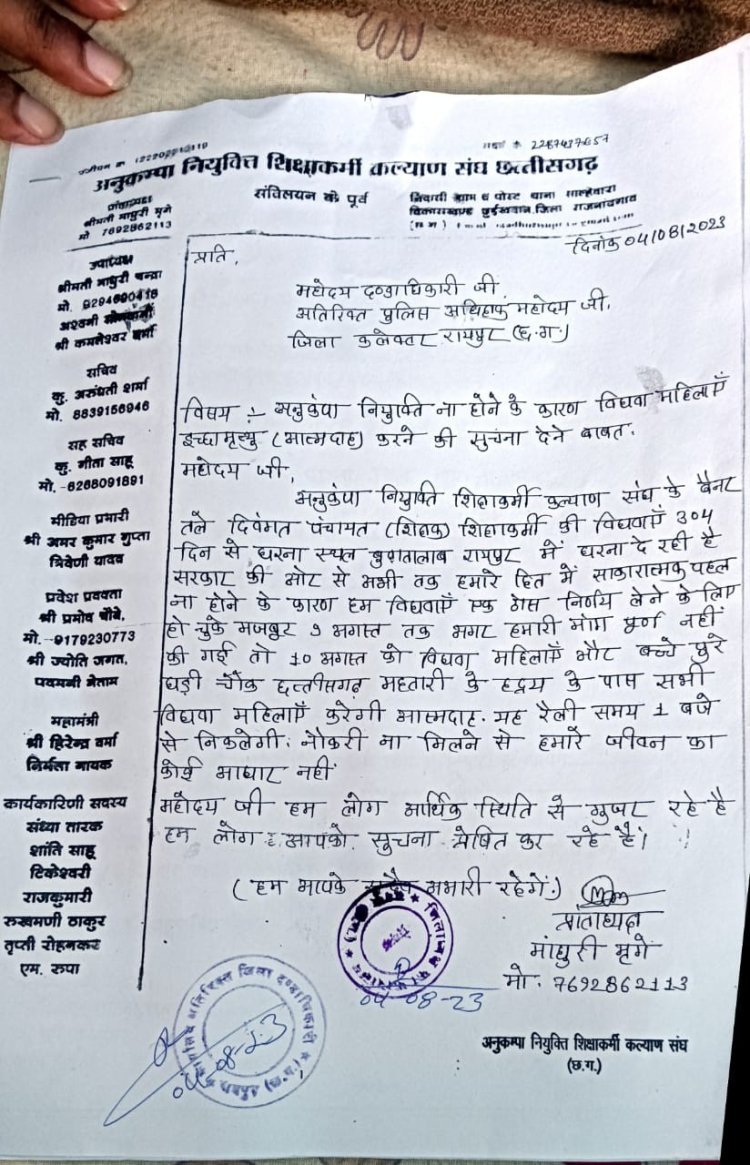 पंजीयन क्र 122202
अनुकम्पा नियुक्ति शिक्षाकर्मी कल्याण संघ छत्तीसगढ़
संविलयन के पूर्व
निवासी ग्राम व पोस्ट थाना साल्हेवारा
विकासखण्ड छुईखदान, जिला राजनांदगांव
प्रांताध्यक्ष
श्रीमती माधुरी मृगे
मो 7692862113
दिनांक 04/08/2023
उपाध्यक्ष
श्रीमती माधुरी चन्द्रा
मो. 9294690416
अश्वनी सोनवानी
श्री कमलेश्वर वर्मा
सचिव
कु. अरुंधती शर्मा
मो. 8839156946
सह सचिव
कु. गीता साहू
मो.-6268091891
मीडिया प्रभारी
श्री अमर कुमार गुप्ता
त्रिवेणी यादव
प्रदेश प्रवक्ता
श्री प्रमोद चौबे,
मो.-9179230773
श्री ज्योति जगत,
पदमनी नेताम
महामंत्री
श्री हिरेन्द्र वर्मा
निर्मला नायक
कार्यकारिणी सदस्य
संध्या तारक
शांति साहू
टिकेश्वरी
राजकुमारी
रुखमणी ठाकुर
तृप्ती रोहनकर
एम. रुपा
प्रति,
महोदय दण्डाधिकारी जी
अतिरिक्त पुलिस अधिक्षक महोदय जी,
जिला कलेक्टर रायपुर (छ.ग.)
विषय :- अनुकंपा नियुक्ति ना होने के कारण विधवा महिलाएँ
इच्छामृत्यु (आत्मदाह) करने की सुचना देने बाबत.
महोदय जी,
अनुकंपा नियुक्ति शिक्षाकर्मी कल्याण संघ के बैनर
तले दिवंगत पंचायत (शिक्षक) शिक्षाकर्मी की विधवाएँ 304
दिन से धरना स्थल बुढ़ातालाब रायपुर में धरना दे रही है
सरकार की ओर से अभी तक हमारे हित में साकारात्मक पहल
ना होने के कारण हम विधवाएँ एक ठोस निर्णय लेने के लिए
हो चुके मजबुर 9 अगस्त तक अगर हमारी माँग पूर्ण नहीं
की गई तो 10 अगस्त को विधवा महिलाएँ और बच्चे पुरे
घड़ी चौक छत्तीसगढ़ महतारी के हृदय के पास सभी
विधवा महिलाएँ करेगी आत्मदाह. यह रैली समय 1 बजे
से निकलेगी. नौकरी ना मिलने से हमारे जीवन का
कोई आधार नहीं
महोदय जी हम लोग आर्थिक स्थिति से गुजर रहे है
हम लोग आपको सुचना प्रेषित कर रहे है।
(हम आपके सदैव अभारी रहेगें.)
प्रांताध्यक्ष
माधुरी मृगे
मो. 7692862113
04-08-23
04-08-23
अनुकम्पा नियुक्ति शिक्षाकर्मी कल्याण संघ
(छ.ग.)